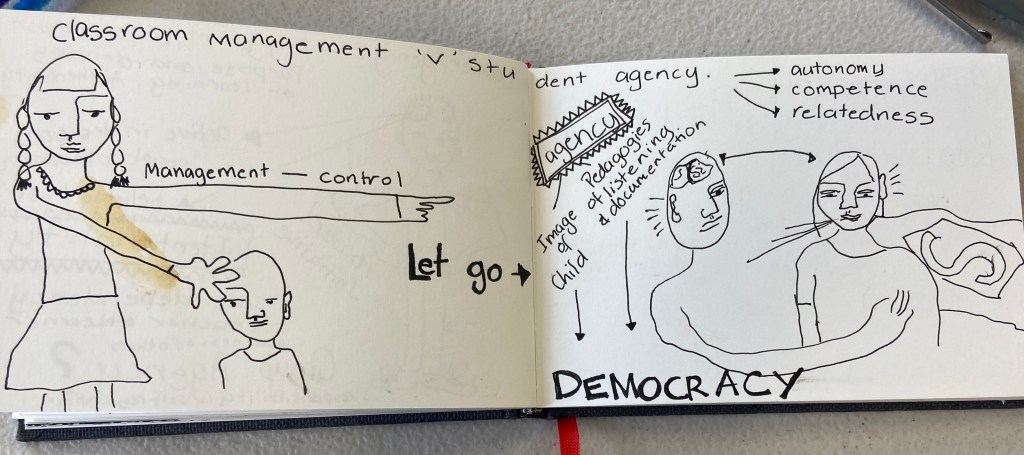 Classroom Management 'v' student agency.
autonomy
competence
relatedness
Management — control
Let go
agency
Image
of
Child
Pedagogies
of listening
& documentation
DEMOCRACY